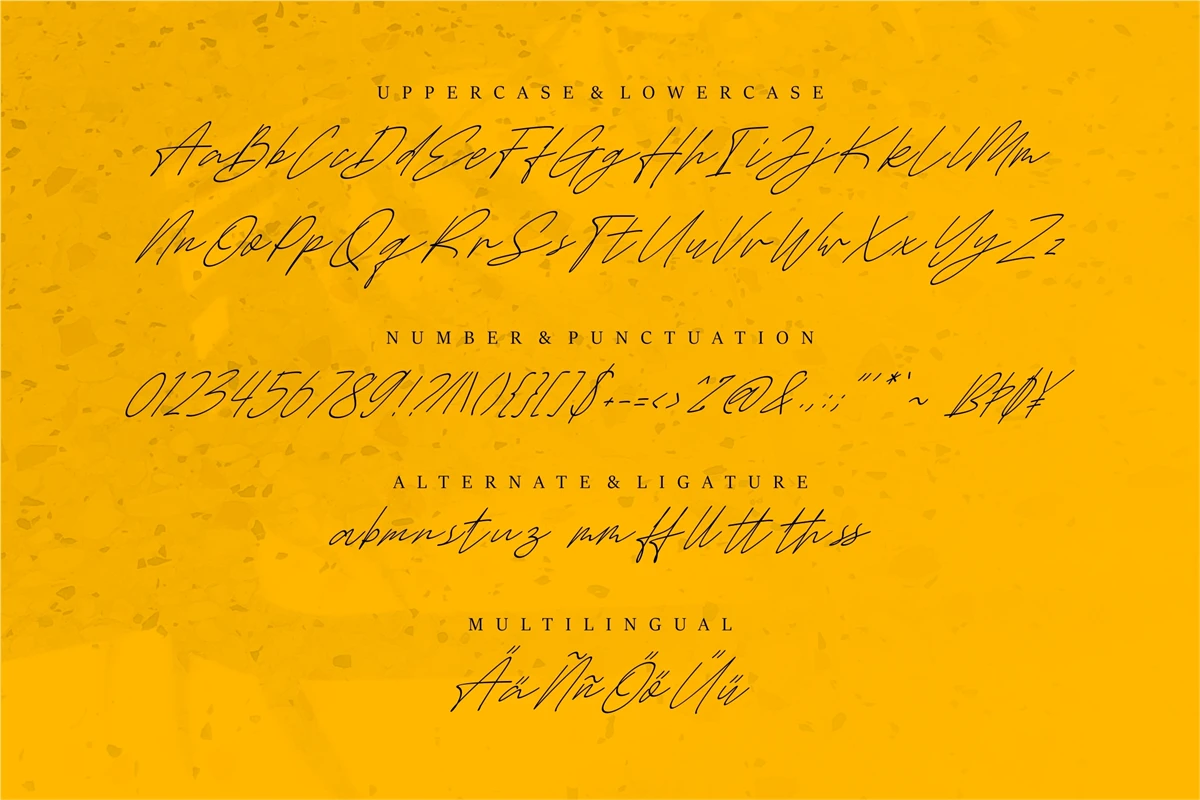 UPPERCASE & LOWERCASE
AaBbCcDdEeFfGgHhIiJjKkLlMm
NnOoPpQqRrSsTtUuVvWwXxYyZz
NUMBER & PUNCTUATION
0123456789!?/|\(){}[]$+-–=<>^%@&.,:;"'*‘ ~
ALTERNATE & LIGATURE
abmnstuz mm ff ll tt th ss
MULTILINGUAL
ÄäÑñÖöÜü